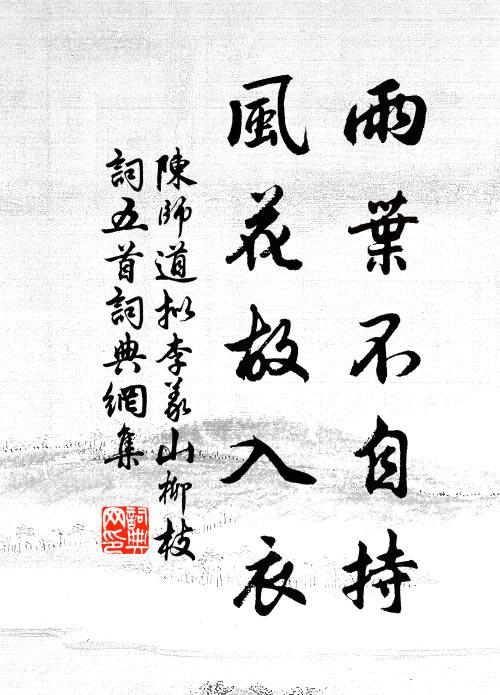 雨葉不自持
風花故入衣
陳師道擬李義山柳枝
詞五首詞典網集
詞典
网印